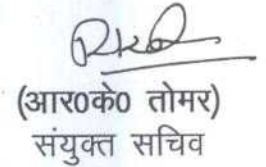 (आर0के0 तोमर)
संयुक्त सचिव